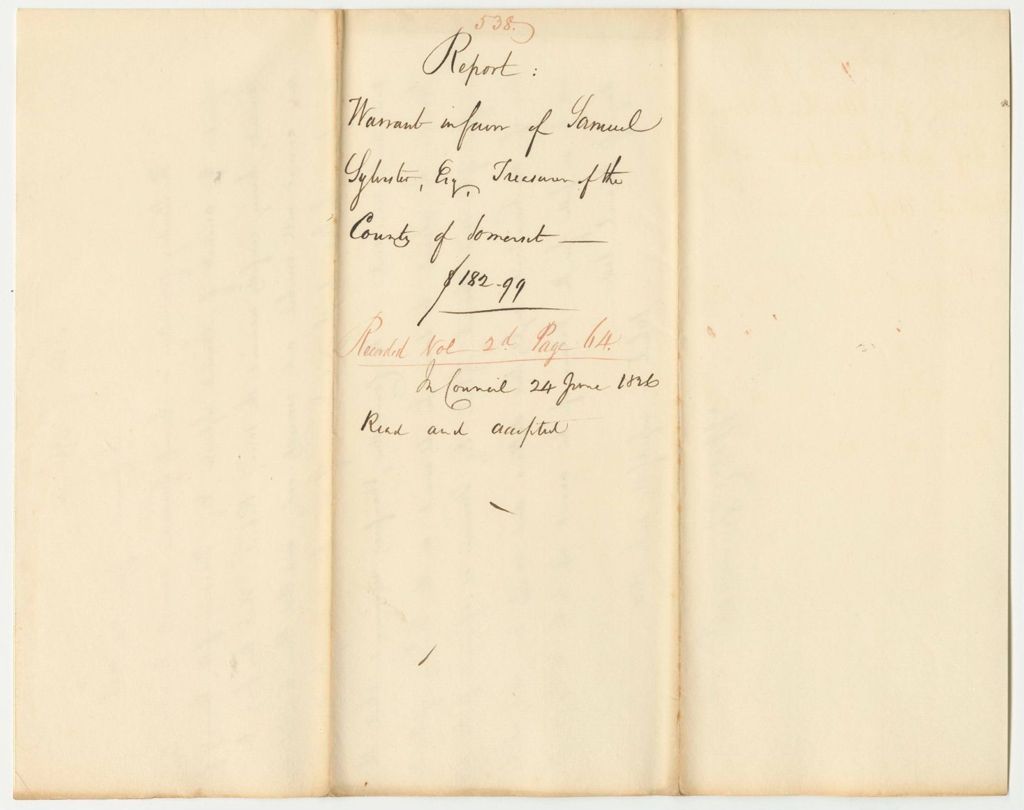 538.
Report:
Warrant in favor of Samuel
Sylvester, Esq, Treasurer of the
County of Somerset —
$182.99
Recorded Vol 2d Page 64.
In Council 24 June 1826
Read and accepted